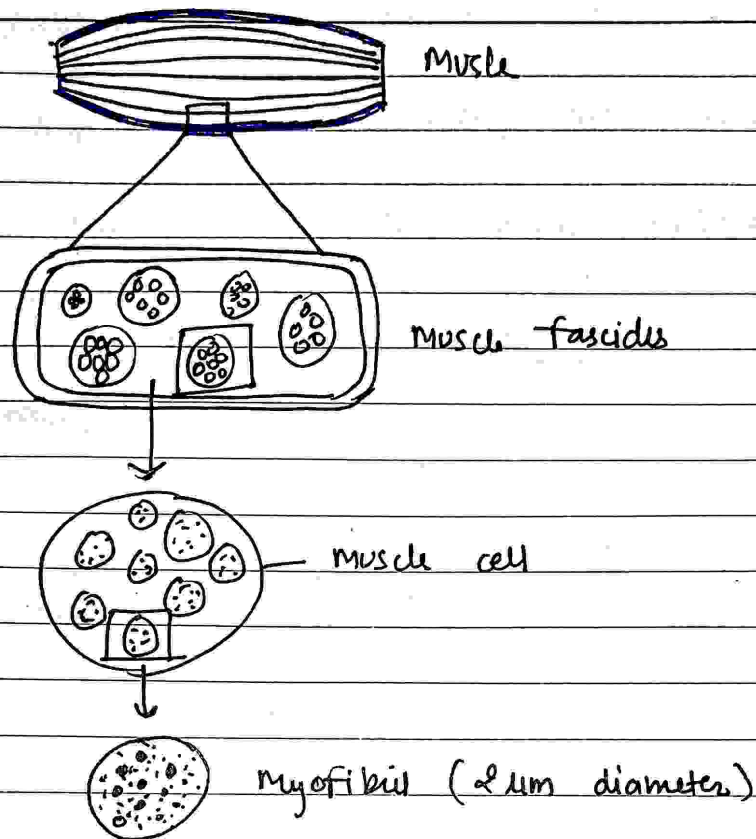 Muscle
Muscle fascicles
Muscle cell
Myofibril (2 µm diameter)